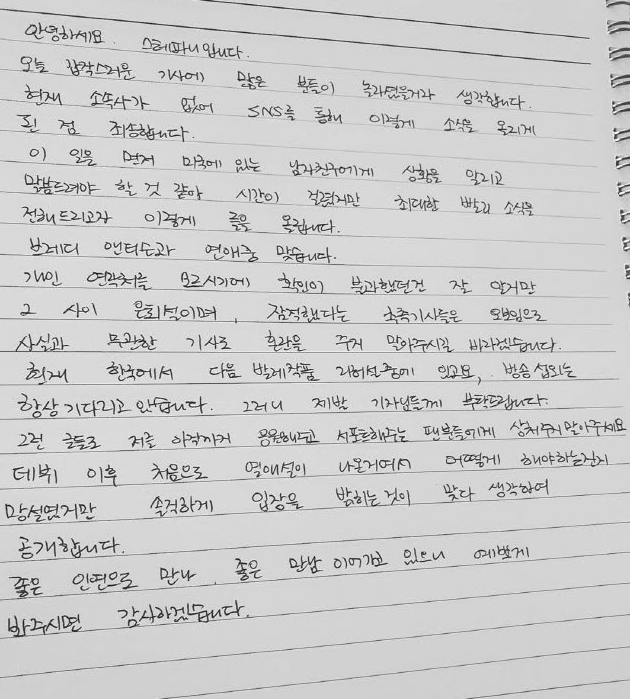 안녕하세요. 스테파니입니다.
오늘 갑작스러운 기사에 많은 분들이 놀라셨을거라 생각합니다.
현재 소속사가 없어 SNS를 통해 이렇게 소식을 올리게
된 점 죄송합니다.
이 일을 먼저 미국에 있는 남자친구에게 상황을 알리고
말씀드려야 할 것 같아 시간이 걸렸지만 최대한 빨리 소식을
전해드리고자 이렇게 글을 올립니다.
브레디 앤더슨과 연애중 맞습니다.
개인 연락처를 모르시기에 확인이 불가했던건 잘 알지만
그 사이 은퇴설이며, 잠적했다는 추측기사들은 오보임으로
사실과 무관한 기사로 혼란을 주지 말아주시길 바라겠습니다.
현재 한국에서 다음 발레작품 리허설중에 있고요, 방송 섭외는
항상 기다리고 있습니다. 그러니 제발 기자님들께 부탁드립니다.
그런 글들로 저를 아직까지 응원해주고 서포트해주는 팬분들에게 상처주지 말아주세요
데뷔 이후 처음으로 열애설이 나온거여서 어떻게 해야하는건지
망설였지만 솔직하게 입장을 밝히는것이 맞다 생각하여
공개합니다.
좋은 인연으로 만나, 좋은 만남 이어가고 있으니 예쁘게
봐주시면 감사하겠습니다.